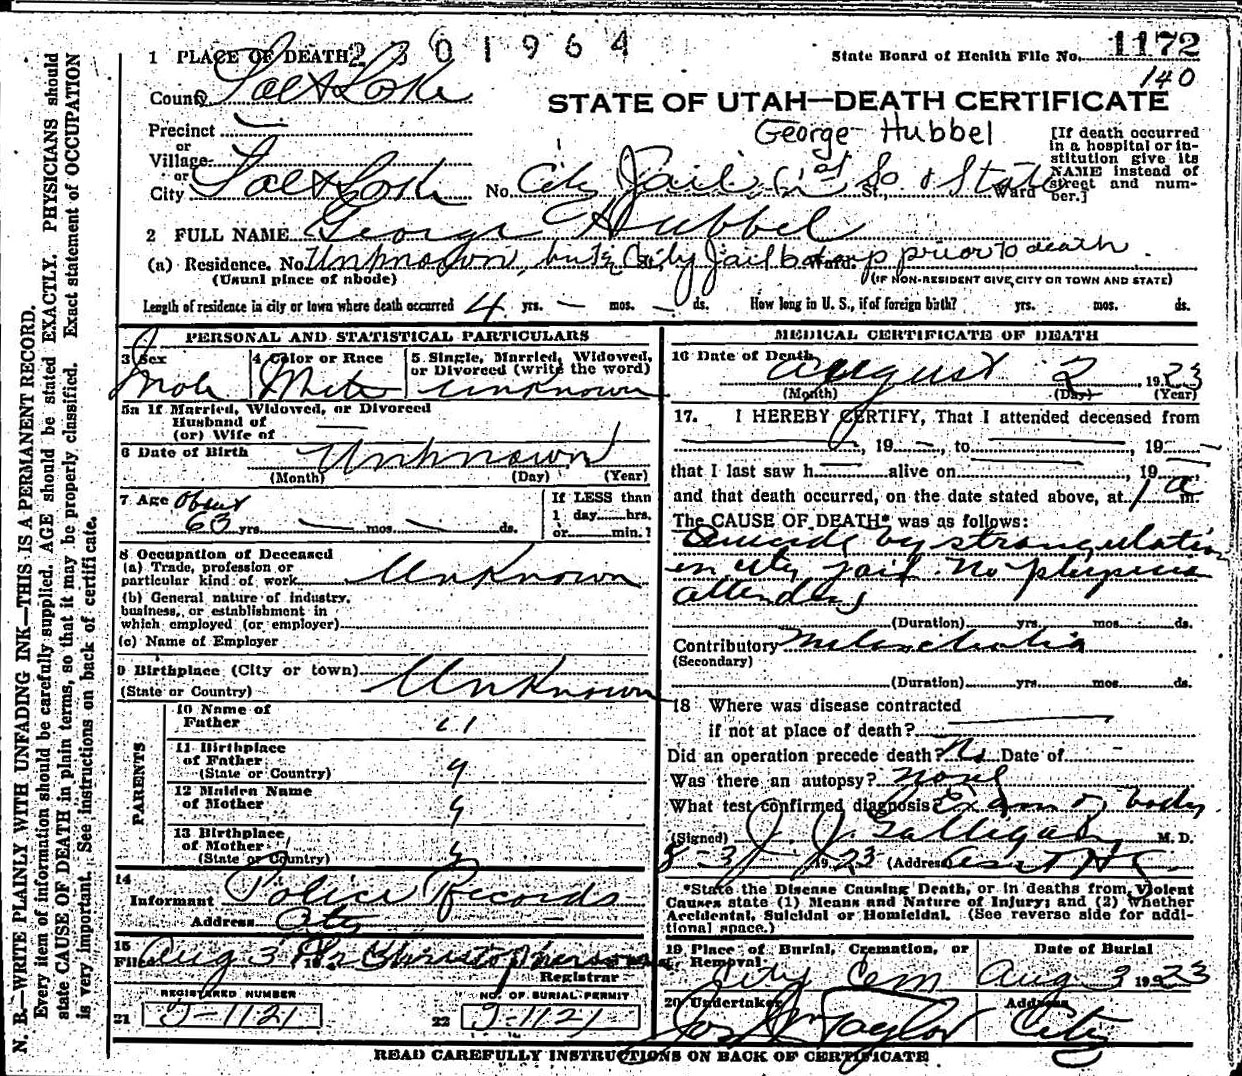 2 3 0 1 9 6 4
1172
1 PLACE OF DEATH
State Board of Health File No.
140
County Salt Lake
STATE OF UTAH—DEATH CERTIFICATE
Precinct —
George Hubbel
or
Village
or
City Salt Lake No. City Jail (1st So & State St., Ward
[If death occurred
in a hospital or in-
stitution give its
NAME instead of
street and num-
ber.]
2 FULL NAME George Hubbel
(a) Residence. No. Unknown, but in City Jail prior to death
(Usual place of abode) (IF NON-RESIDENT GIVE CITY OR TOWN AND STATE)
Length of residence in city or town where death occurred 4 yrs. — mos. — ds. How long in U. S., if of foreign birth? yrs. mos. ds.
PERSONAL AND STATISTICAL PARTICULARS
3 Sex
Male
4 Color or Race
White
5 Single, Married, Widowed,
or Divorced (write the word)
Unknown
5a If Married, Widowed, or Divorced
Husband of
(or) Wife of —
6 Date of Birth Unknown
(Month) (Day) (Year)
7 Age About
63 yrs. — mos. — ds.
If LESS than
1 day......hrs.
or......min.?
8 Occupation of Deceased
(a) Trade, profession or
particular kind of work Unknown
(b) General nature of industry,
business, or establishment in
which employed (or employer)
(c) Name of Employer
9 Birthplace (City or town)
(State or Country) Unknown
PARENTS
10 Name of
Father "
11 Birthplace
of Father "
(State or Country)
12 Maiden Name
of Mother "
13 Birthplace
of Mother "
(State or Country)
14
Informant Police Records
Address City
15
Filed Aug 3
Registrar
REGISTERED NUMBER
21 J-1121
NO. OF BURIAL PERMIT
22 J-1121
MEDICAL CERTIFICATE OF DEATH
16 Date of Death August 2, 1923
(Month) (Day) (Year)
17. I HEREBY CERTIFY, That I attended deceased from
—, 19 —, to —, 19 —
that I last saw h — alive on —, 19 —
and that death occurred, on the date stated above, at 1 a m.
The CAUSE OF DEATH* was as follows:
Suicide by strangulation
in city jail. No physician
attending
(Duration) yrs. mos. ds.
Contributory Melancholia
(Secondary)
(Duration) yrs. mos. ds.
18 Where was disease contracted
if not at place of death? —
Did an operation precede death? No Date of
Was there an autopsy? none
What test confirmed diagnosis? Exam of body
(Signed) J. J. Galligan M. D.
8-3-1923 (Address)
*State the Disease Causing Death, or in deaths from Violent
Causes state (1) Means and Nature of Injury; and (2) Whether
Accidental, Suicidal or Homicidal. (See reverse side for addi-
tional space.)
19 Place of Burial, Cremation, or
Removal
City Cem
Date of Burial
Aug 3 1923
20 Undertaker
Jos Wm Taylor
Address
City
READ CAREFULLY INSTRUCTIONS ON BACK OF CERTIFICATE
N. B.—WRITE PLAINLY WITH UNFADING INK—THIS IS A PERMANENT RECORD.
Every item of information should be carefully supplied. AGE should be stated EXACTLY. PHYSICIANS should
state CAUSE OF DEATH in plain terms, so that it may be properly classified. Exact statement of OCCUPATION
is very important. See instructions on back of certificate.